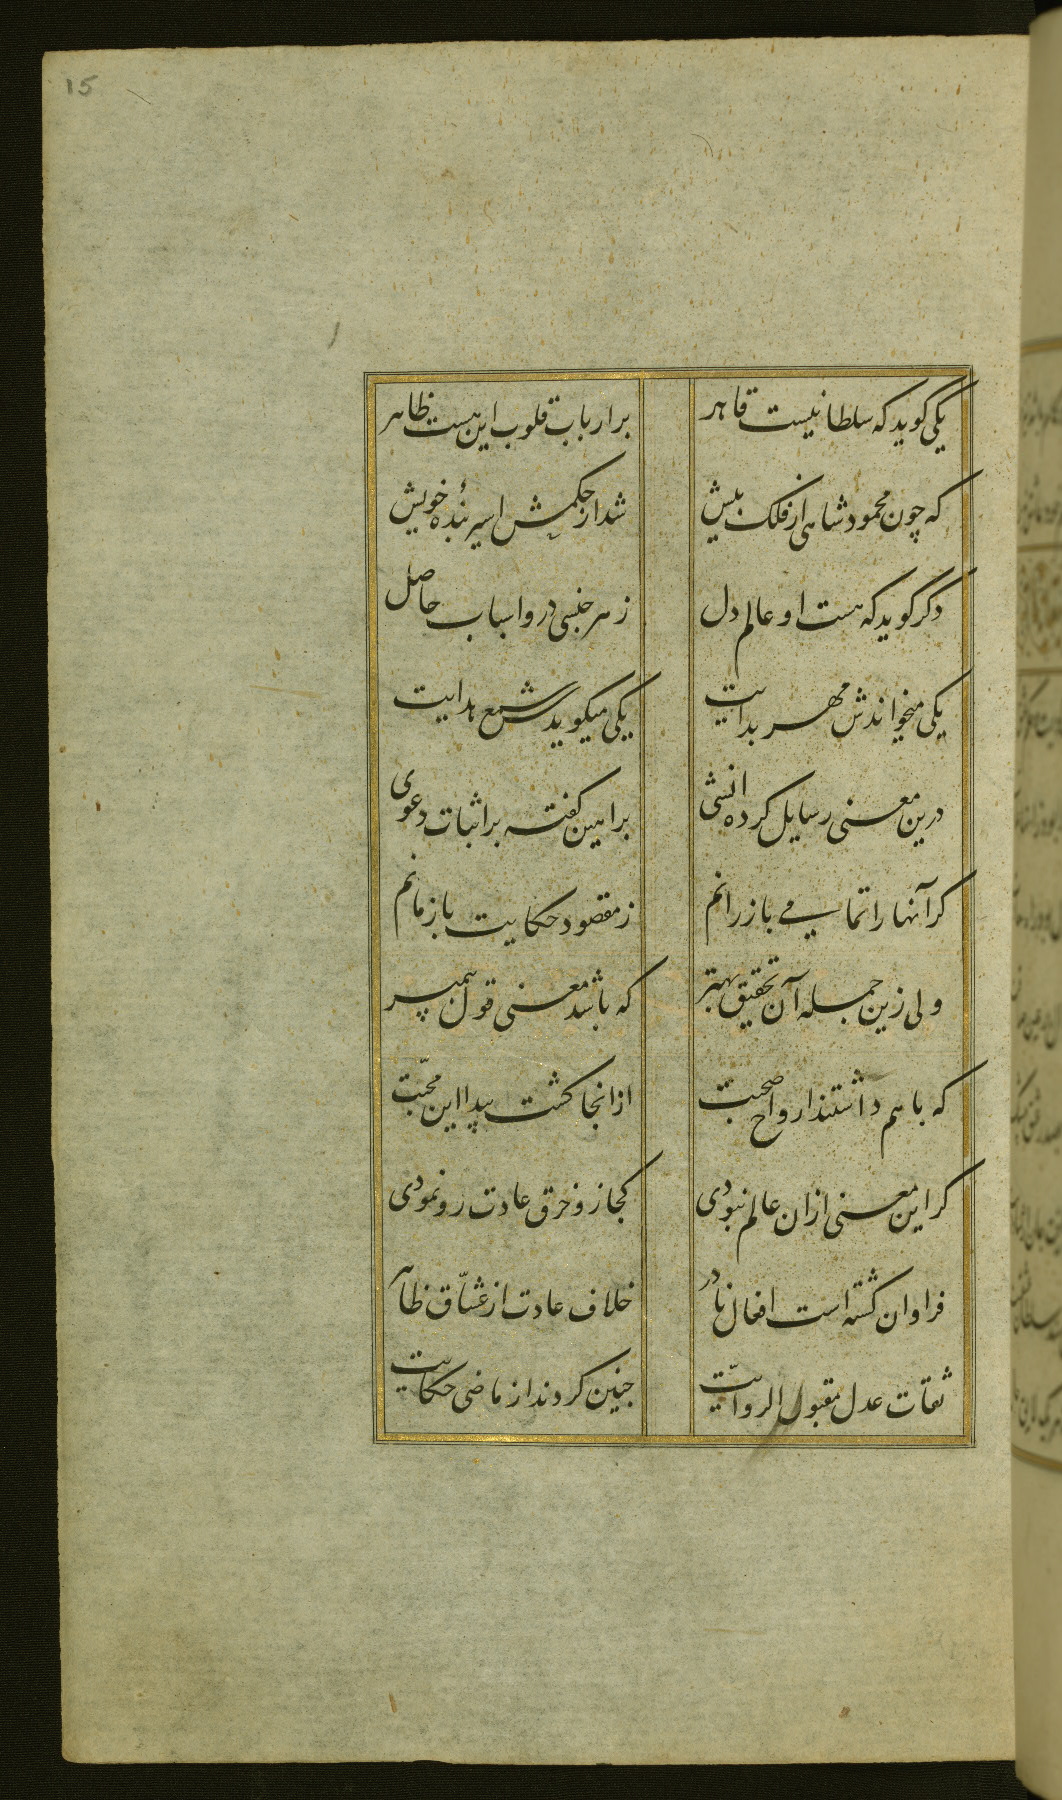 15
یکی کوید که سلطانیست قاهر
برارباب قلوب این هست ظاهر
که چون محمود شاهی از فلک بیش
شد از حکمش اسیر بندهٔ خویش
دکر کوید که هست او عالم دل
ز هر جنسی درو اسباب حاصل
یکی میخواندش مهر بدایت
یکی میکویدش شمع هدایت
درین معنی رسایل کرده انشی
براهین کفته بر اثبات دعوی
کر آنها را تمامی باز رانم
ز مقصود حکایت باز مانم
ولی زین جمله آن تحقیق بهتر
که باشد معنی قول پیمبر
که با هم داشتند ارواح صحبت
از انجا کشت پیدا این محبّت
کر این معنی ازان عالم نبودی
کجا زو خرق عادت رو نمودی
فراوان کشته است افعال نادر
خلاف عادت از عشّاق ظاهر
ثقات عدل مقبول الروایت
چنین کردند از ماضی حکایت